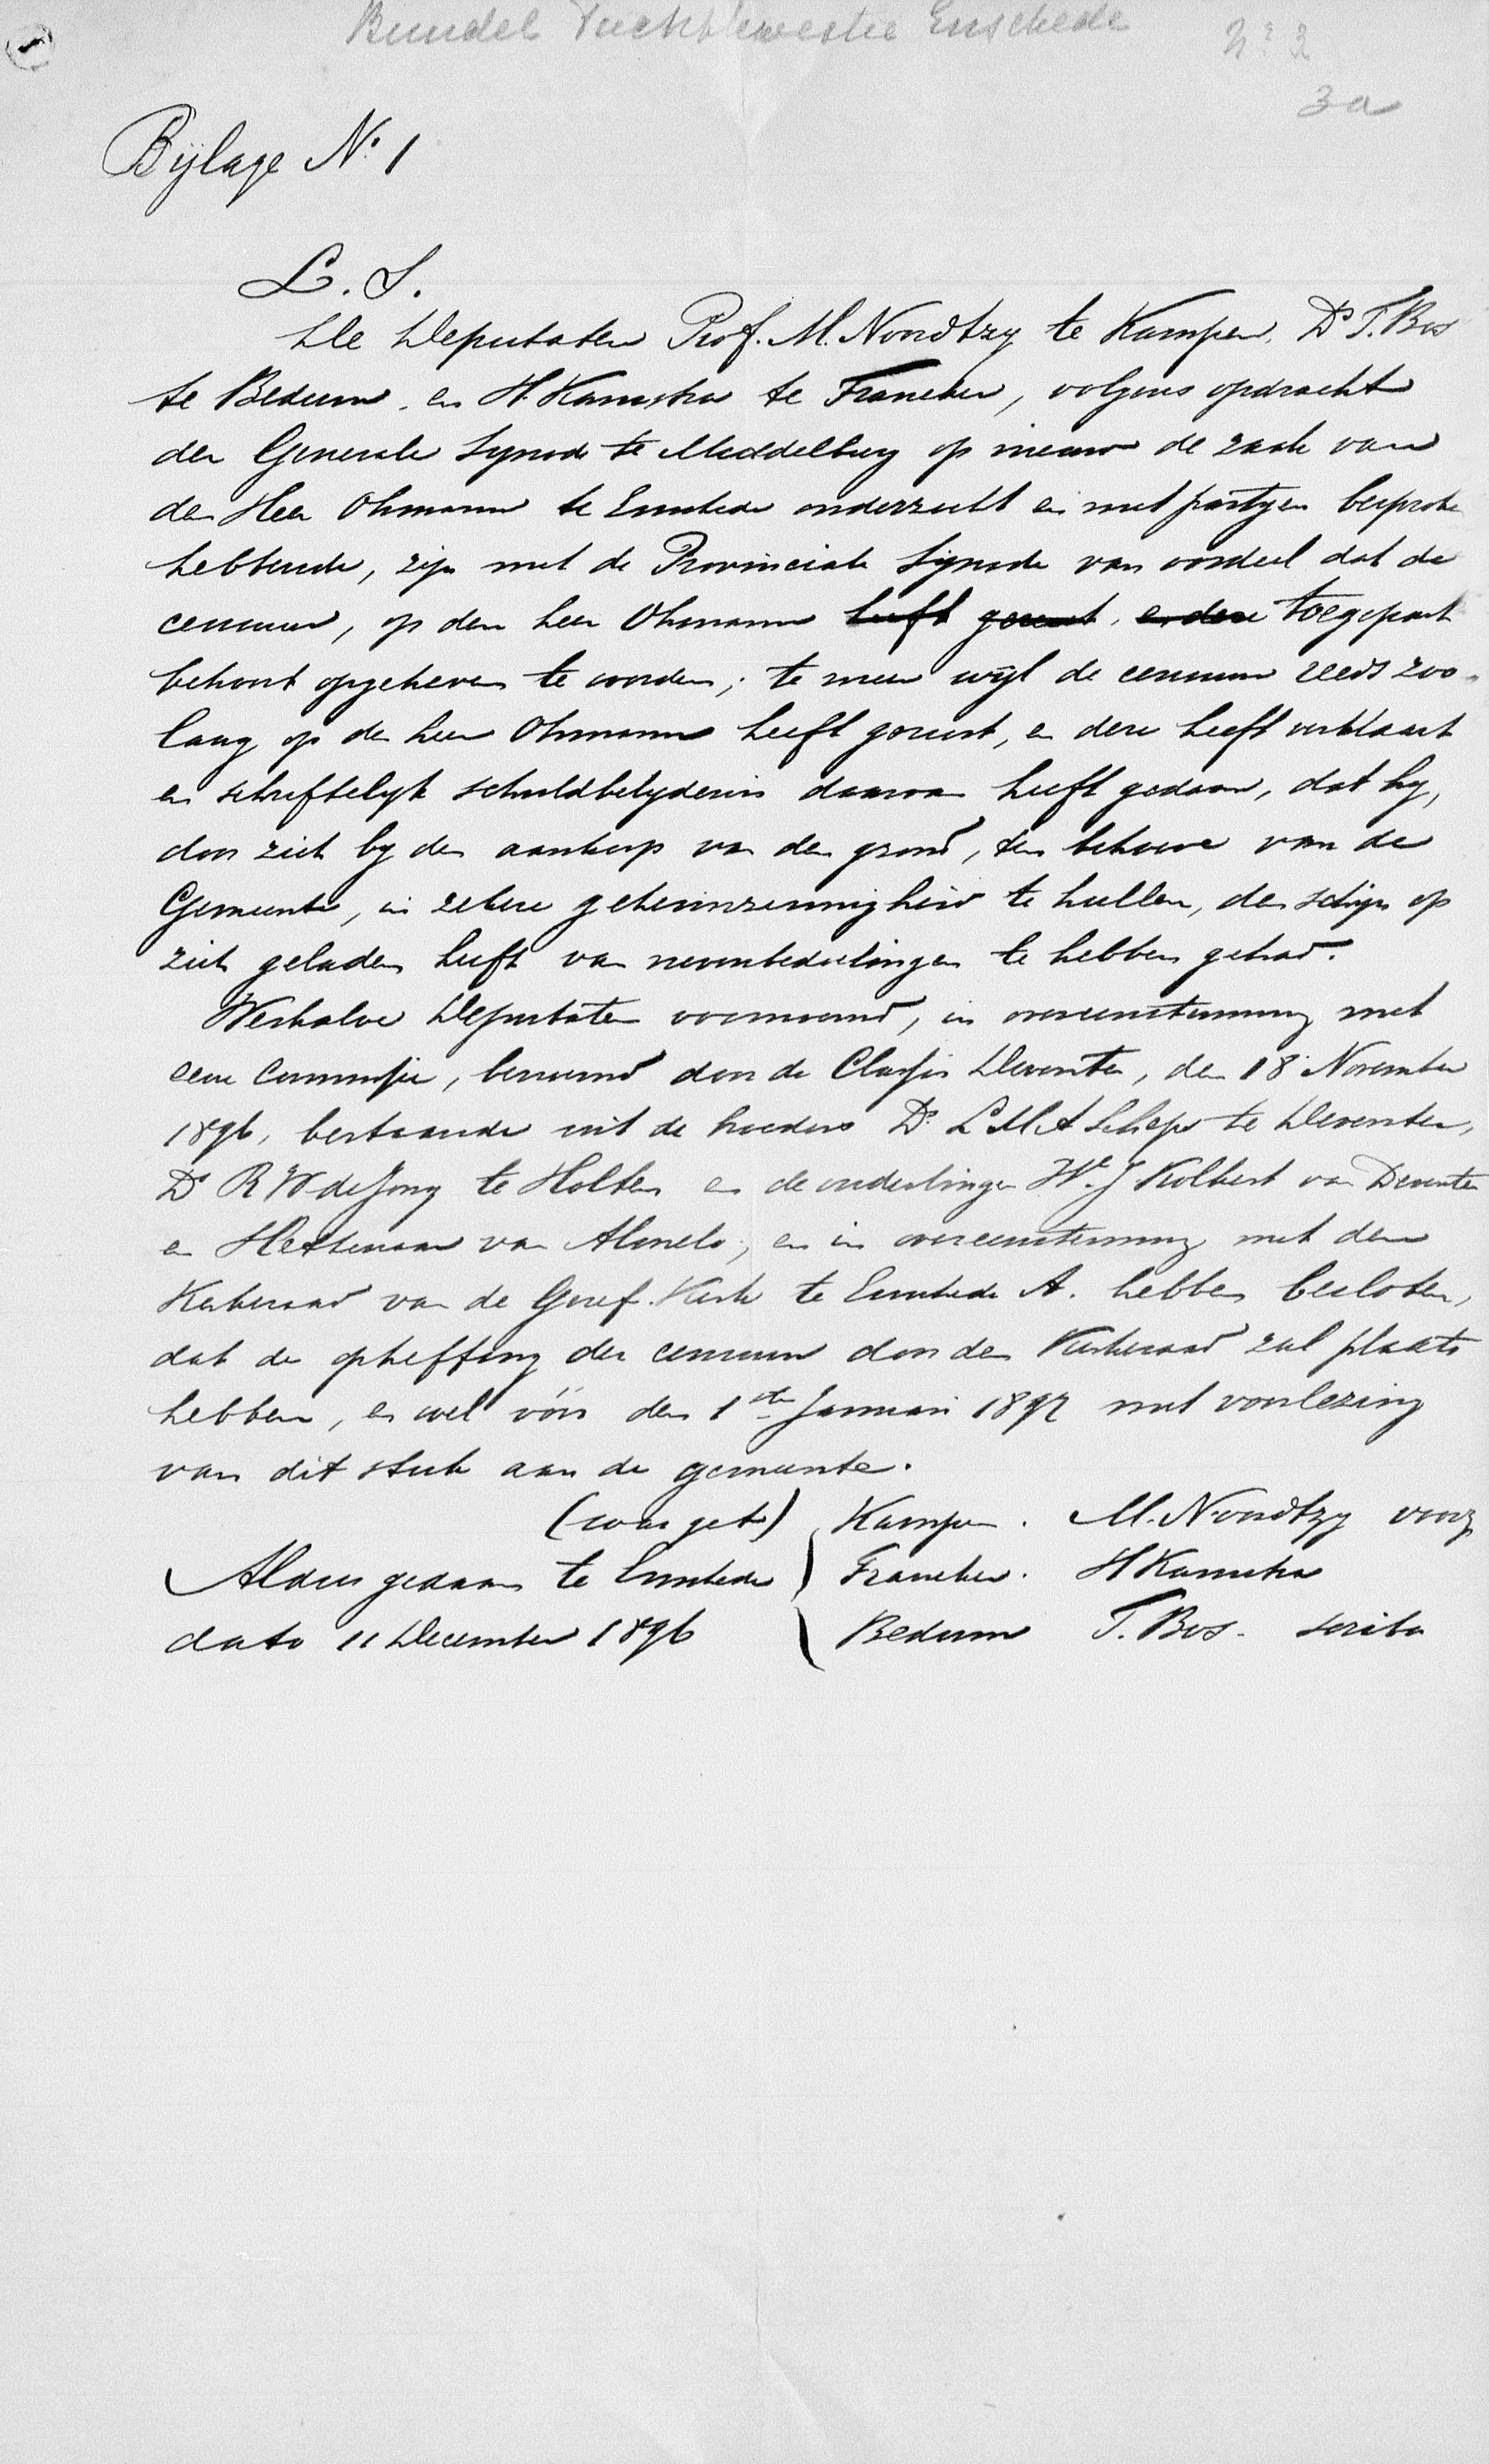 Bundel Tuchtkwestie Enschede
No 2
3a
Bijlage No. 1
L. S.
De Deputaten Prof. M. Noordtzy te Kampen, Ds T. Bos
te Bedum, en H. Kamstra te Franeker, volgens opdracht
der Generale Synode te Middelburg op nieuw de zaak van
den Heer Ohmann te Enschede onderzocht en met partyen besproken
hebbende, zijn met de Provinciale Synode van oordeel dat de
censuur, op den heer Ohmann heeft gerust, en deze toegepast
behoort opgeheven te worden; te meer wijl de censuur reeds zoo
lang op den heer Ohmann heeft gerust, en deze heeft verklaart
en schriftelyk schuldbelydenis daarvan heeft gedaan, dat hy,
door zich by den aankoop van den grond, ten behoeve van de
Gemeente, in zekere geheimzinnigheid te hullen, den schijn op
zich geladen heeft van nevenbedoelingen te hebben gehad.
Weshalve Deputaten voornoemd, in overeenstemming met
eene Commissie, benoemd door de Classis Deventer, den 18 November
1896, bestaande uit de broeders Ds. L M A Scheps te Deventer,
Ds R W de Jong te Holten en de ouderlingen We. J Kolbert van Deventer
en Hetteraar van Almelo, en in overeenstemming met den
Kerkeraad van de Geref. Kerk te Enschede A. hebben besloten,
dat de opheffing der censuur door den Kerkeraad zal plaats
hebben, en wel vóór den 1sten Januari 1897 met voorlezing
van dit stuk aan de gemeente.
(was get) Kampen. M. Noordtzy voorz
Aldus gedaan te Enschede Franeker. H Kamstra
dato 11 December 1896 Bedum T. Bos. scriba